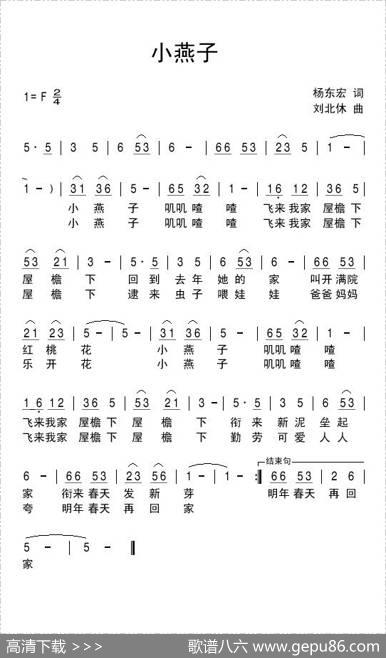 小燕子
1=F 2/4
杨东宏 词
刘北休 曲
5·5 | 3 5 | 6 53 | 6 - | 66 53 | 23 5 | 1 - |
1 -) | 31 36 | 5 - | 65 32 | 1 - | 16 12 | 36 5 |
小 燕 子 叽叽 喳 喳 飞来 我家 屋檐 下
小 燕 子 叽叽 喳 喳 飞来 我家 屋檐 下
53 21 | 3 - | 5·5 | 3 5 | 6 53 | 6 - | 66 53 |
屋 檐 下 回到 去年 她的 家 叫开 满院
屋 檐 下 逮来 虫子 喂娃 娃 爸爸 妈妈
21 23 | 5 - | 5 - | 31 36 | 5 - | 65 32 | 1 - |
红 桃 花 小 燕 子 叽叽 喳 喳
乐 开 花 小 燕 子 叽叽 喳 喳
16 12 | 36 5 | 53 21 | 3 - | 5·5 | 3 5 | 6 53 |
飞来我家 屋檐 下 屋 檐 下 衔来 新泥 垒起
飞来我家 屋檐 下 屋 檐 下 勤劳 可爱 人人
结束句
6 - | 66 53 | 23 56 | 1 - | 1 - :‖ 66 53 | 2 6 |
家 衔来 春天 发 新 芽 明年 春天 再回
夸 明年 春天 再 回 家
5 - | 5 - ‖
家
高清下载 >>>
歌谱八六 www.gepu86.com